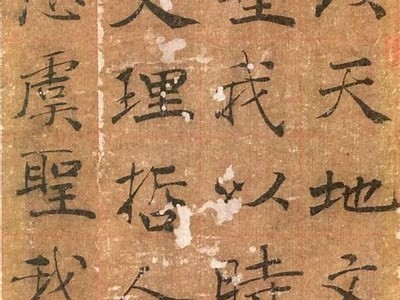 天地文
我以時
理哲人
虞聖我